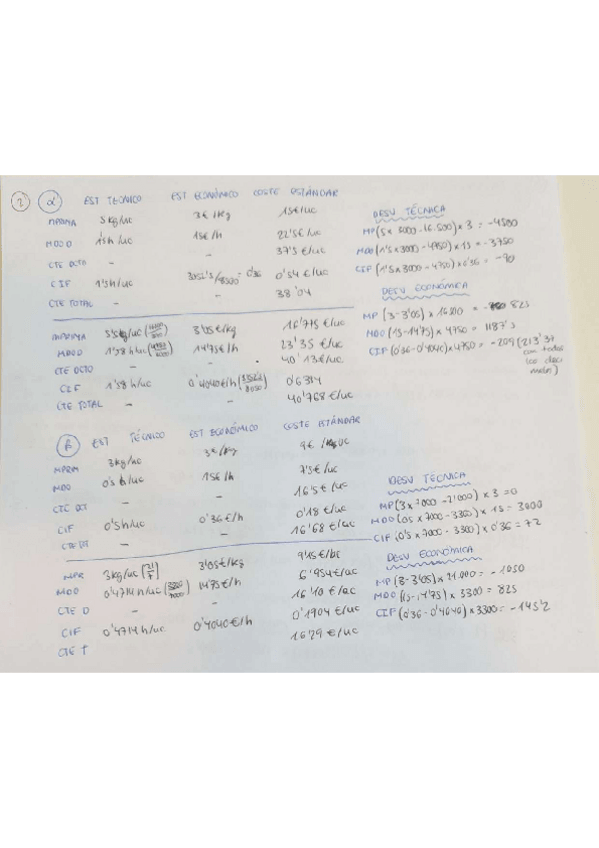 2 α EST TÉCNICO EST ECONÓMICO COSTE ESTÁNDAR
MPRIMA 5 kg/uc 3€/kg 15€/uc
MOD 1'5h/uc 15€/h 22'5€/uc
CTE DCTO - - 37'5 €/uc
CIF 1'5h/uc 0'36 0'54 €/uc
CTE TOTAL - - 38'04
DESV TÉCNICA
MP (5 x 3000 - 16.500) x 3 = -4500
MOD (1'5 x 3000 - 4750) x 15 = -3750
CIF (1'5 x 3000 - 4750) x 0'36 = -90
DESV ECONÓMICA
MP (3 - 3'05) x 16500 = - 825
MOD (15 - 14'75) x 4750 = 1187'5
CIF (0'36 - 0'4040) x 4750 = -209 (213'37 con todos los decimales)
MPRIMA 5'5kg/uc 3'05€/kg 16'775 €/uc
MOD 1'58h/uc (4750/3000) 14'75€/h 23'35 €/uc
CTE DCTO - - 40'13€/uc
CIF 1'58 h/uc 0'4040€/h 0'6384
CTE TOTAL - - 40'768€/uc
β EST TÉCNICO EST ECONÓMICO COSTE ESTÁNDAR
MPRM 3kg/uc 3€/kg 9€/uc
MOD 0'5h/uc 15€/h 7'5€/uc
CTE DCT - - 16'5€/uc
CIF 0'5h/uc 0'36€/h 0'18€/uc
- - 16'68 €/uc
DESV TÉCNICA
MP (3 x 7000 - 21000) x 3 = 0
MOD (0'5 x 7000 - 3300) x 15 = 3000
CIF (0'5 x 7000 - 3300) x 0'36 = 72
DESV ECONÓMICA
MP (3 - 3'05) x 21.000 = - 1050
MOO (15 - 14'75) x 3300 = 825
CIF (0'36 - 0'4040) x 3300 = - 145'2
MPR 3kg/uc (21/7) 3'05€/kg 9'15€/uc
MOD 0'4714h/uc (3300/7000) 14'75€/h 6'954€/uc
CTE D - - 16'10 €/uc
CIF 0'4714h/uc 0'4040€/h 0'1904 €/uc
CTE T - - 16'29 €/uc